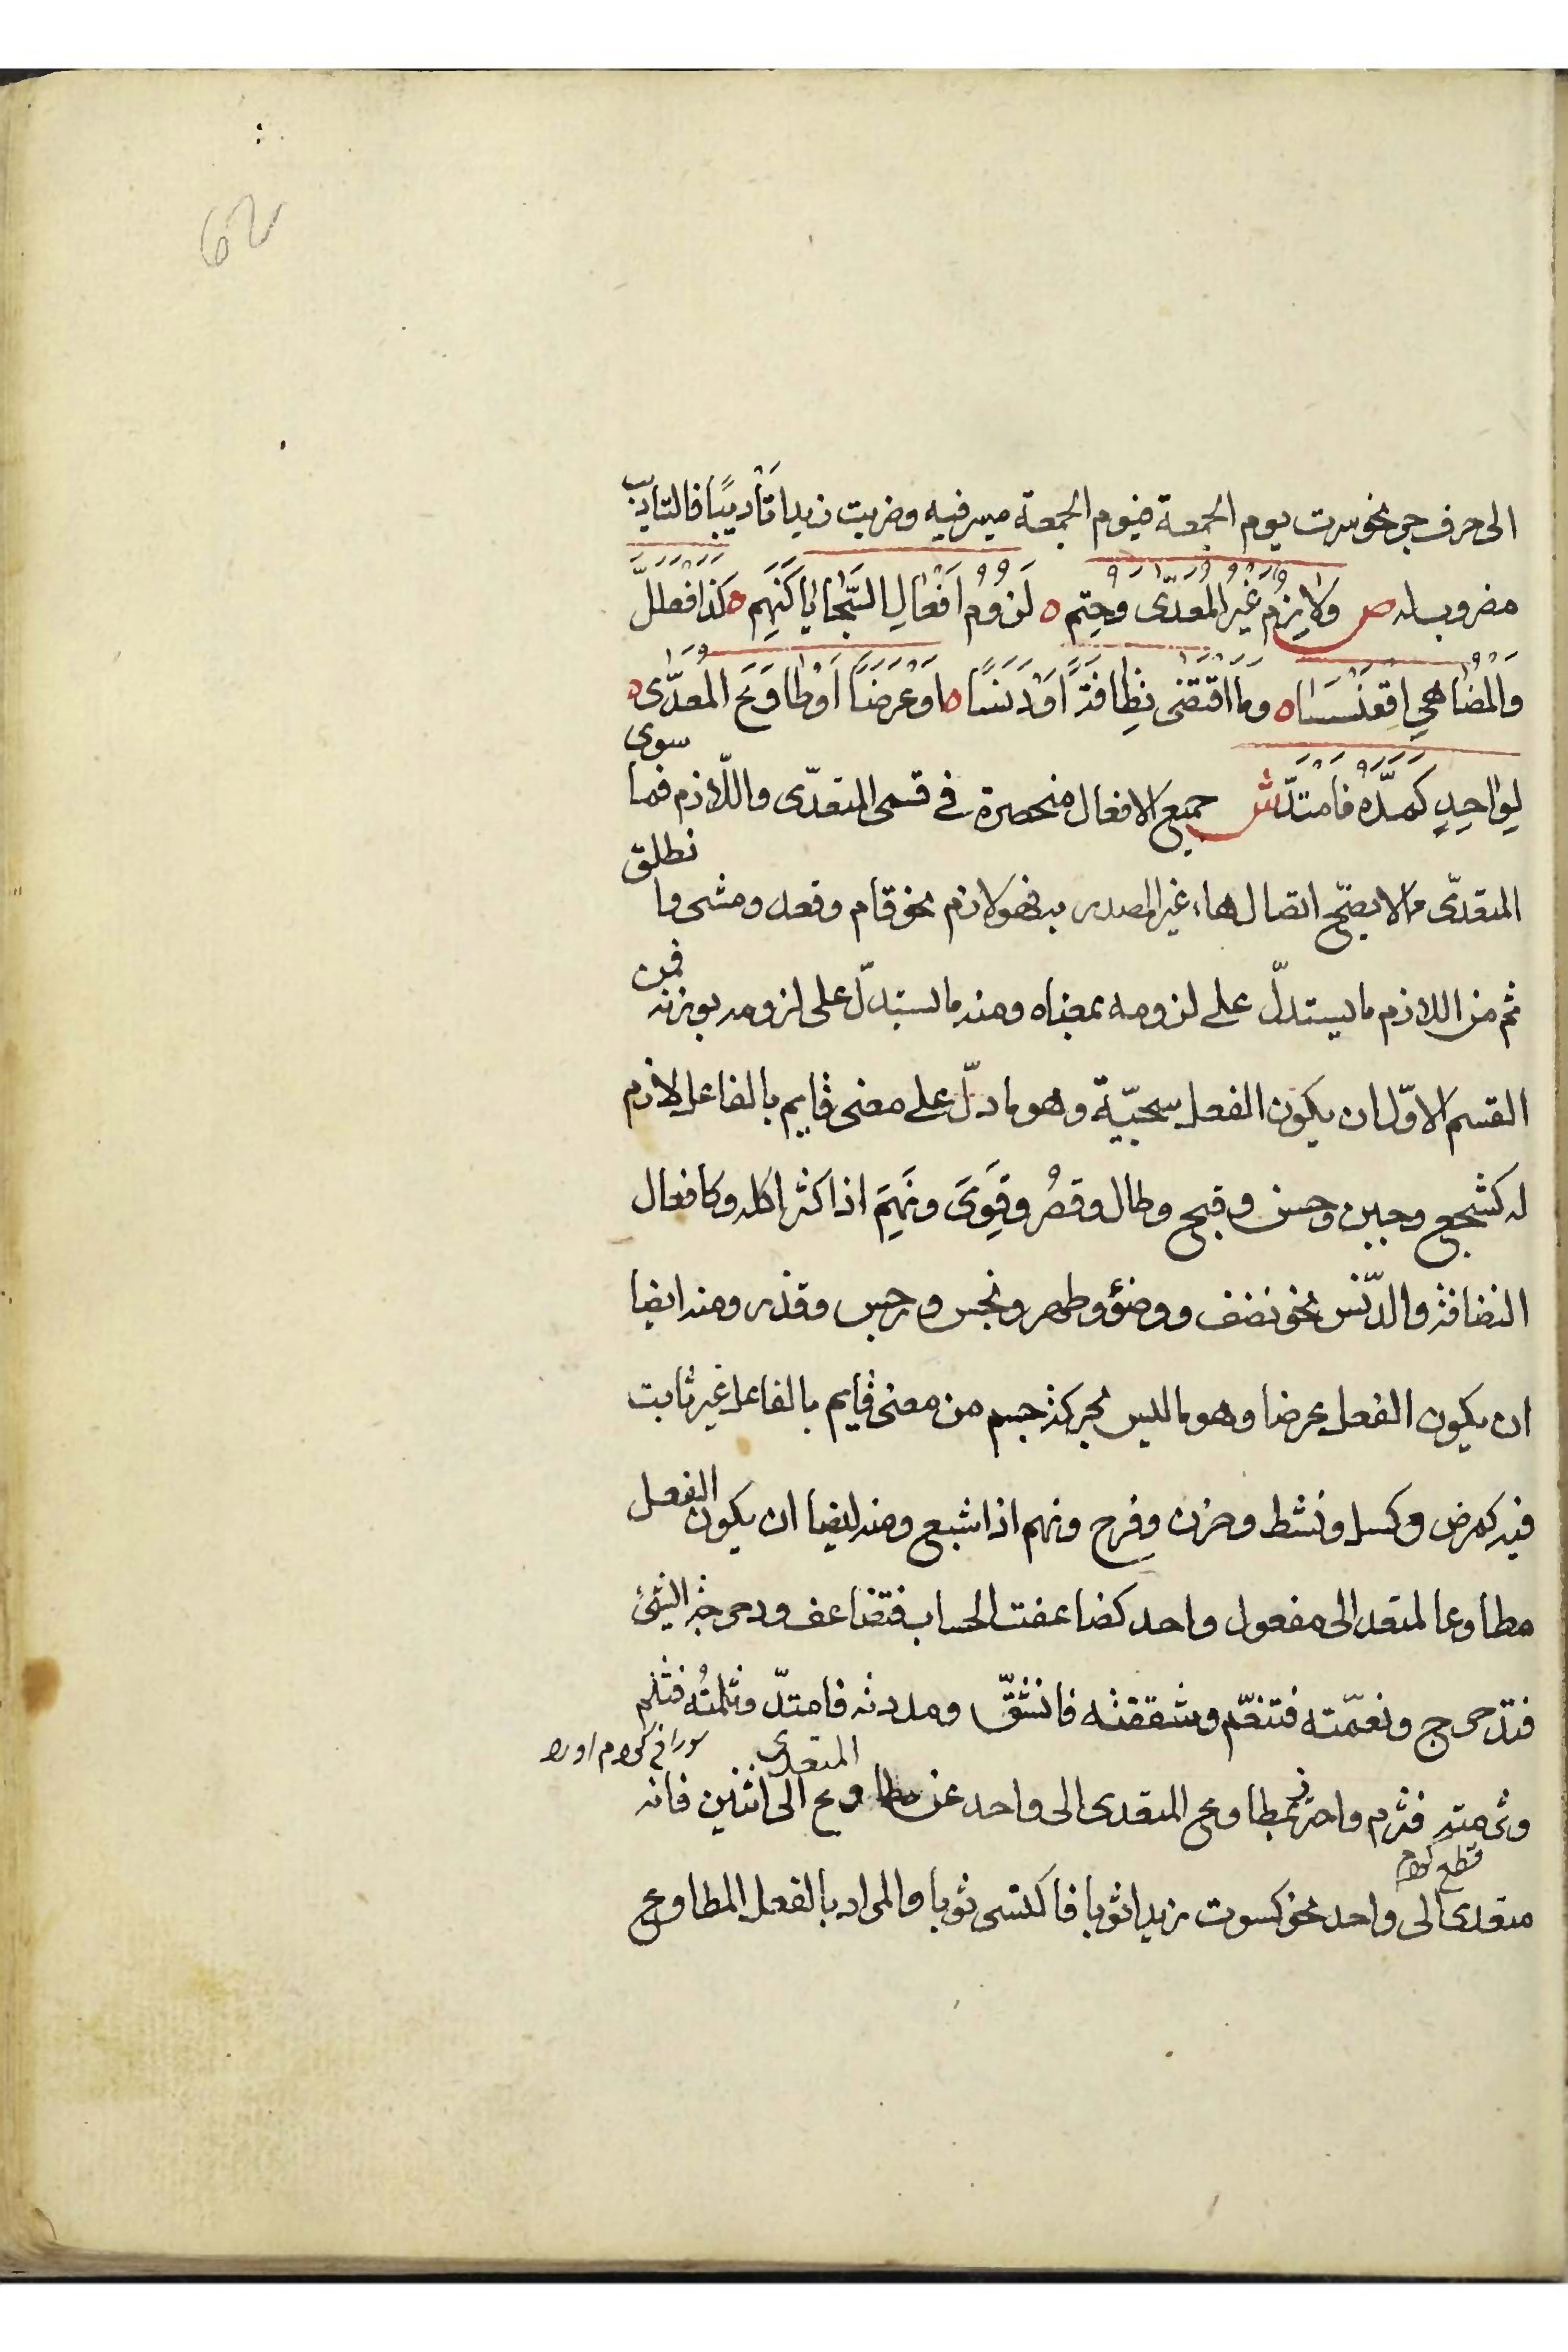 62
الى حرف جر نحو سرت يوم الجمعة فيوم الجمعة مسير فيه وضربت زيدا تَأْديبًا فالتاديب
مضروب له ص وَلازِمٌ غَيْرُ المُعَدّى وَحُتِم ه لُزُومُ اَفْعَالِ السَّجَايَا كَنَهِمَ ه كَذَا افْعَلَلَّ
وَالمُضَاهِي اِقْعَنْسَسَا ه وما اقْتَضَى نِظَافَةً اَوْ دَنَسًا ه اَوْ عَرَضًا اَوْ طَاوَعَ المُعَدّى ه
لِوَاحِدٍ كَمَدَّهُ فَامْتَدَّ ش جميع الافعال منحصرة فى قسمى المتعدّى واللّازم فما سوى
المتعدّى مما لا يصحّ اتصال هاء غير المصدر به فهو لازم نحو قام وقعد ومشى وانطلق
ثم من اللازم ما يستدلّ على لزومه بمعناه ومنه ما يستدلّ على لزومه بوزنه فمن
القسم الاوّل ان يكون الفعل سجيّة وهو ما دلّ على معنى قايم بالفاعل لازم
له كشجع وجبن وحسن وقبح وطال وقصُر وقَوِىَ ونَهِمَ اذا كثر اكله وكافعال
النضافة والدّنس نحو نضف ووضؤ وطهر ونجس ورجس وقذر ومنه ايضا
ان يكون الفعل عرضا وهو ما ليس بحركة جسم من معنى قايم بالفاعل غير ثابت
فيه كمرض وكسل ونشط وحزن وفرح ونهم اذا شبع ومنه ايضا ان يكون الفعل
مطاوعا لمتعد الى مفعول واحد كضاعفت الحساب فتضاعف ودحرجة الشئ
فتدحرج ونعّمته فتنعّم وشققته فانشقّ ومددته فامتدّ وثلمتُه فثلم
وثرمته فثرم واحترز بمطاوع المتعدى الى واحد عن مطاوع المتعدى الى اثنين فانه
قطع
متعدى الى واحد نحو كسوت زيدا ثوبا فاكتسى ثوبا والمراد بالفعل المطاوع